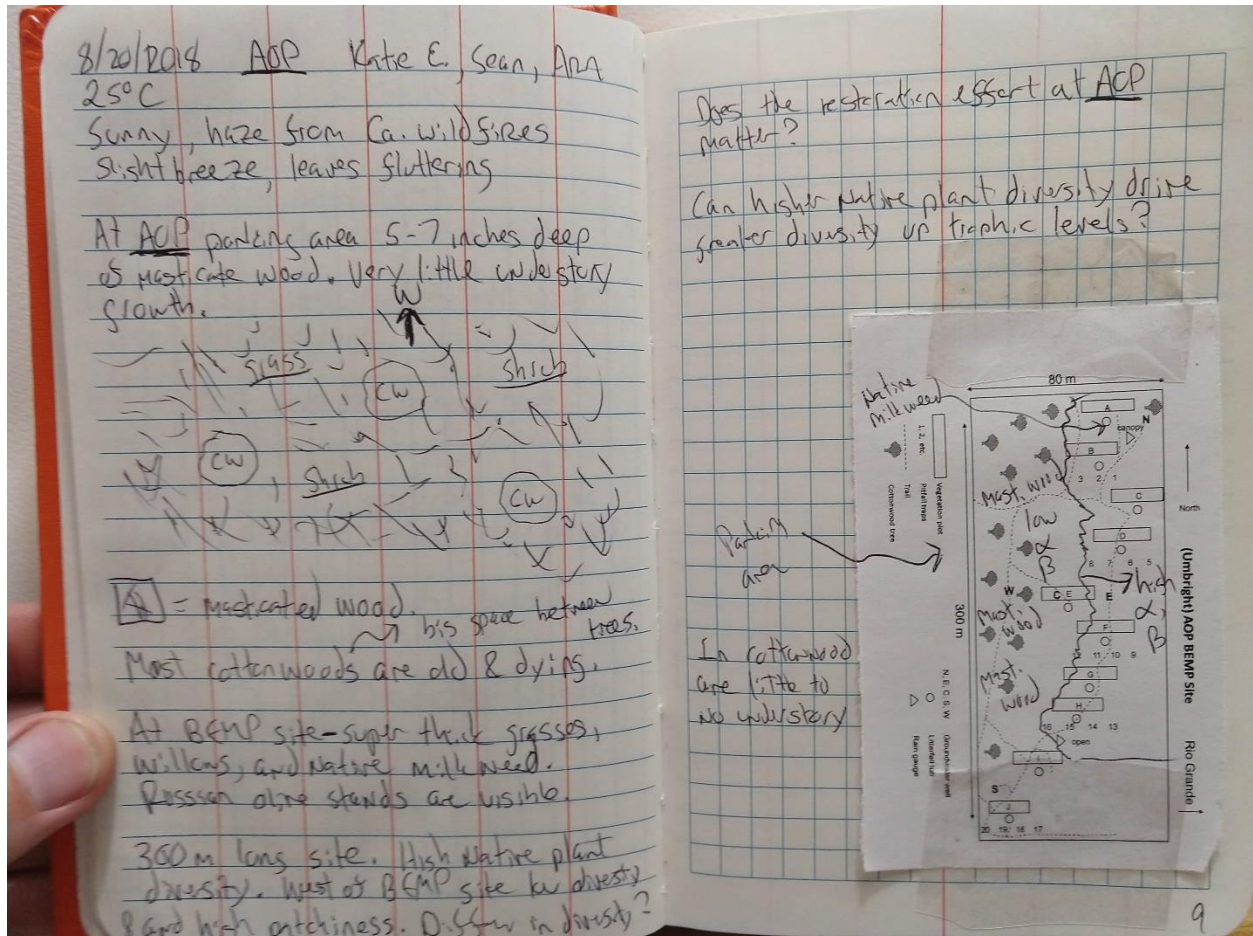 8/20/2018 AOP Katie E., Sean, Ara
25°C
Sunny, haze from Ca. wildfires
Slight breeze, leaves fluttering
At AOP parking area 5-7 inches deep
of masticate wood. Very little understory
growth.
W
Grass
CW
Shrub
CW
Shrub
CW
= masticated wood.
big space between
trees.
Most cottonwoods are old & dying.
At BEMP site-super thick grasses,
willows, and Native milkweed.
Russian olive stands are visible.
300m long site. High Native plant
diversity. West of BEMP site low diversty
and high patchiness. Differ in diversty?
Does the restoration effort at AOP
matter?
Can higher Native plant diversity drive
greater diversity up trophic levels?
Native
milkweed
Parking
area
In cottonwood
are little to
No understory
80 m
A
N
canopy
B
3 2 1
C
D
8 7 6 5
C, E
E
F
11 10 9
G
H
16 15 14 13
open
I
S
J
20 19 18 17
W
Mast. wood
low
α
β
Mast.
wood
Mast.
wood
high
α,
β
300 m
Vegetation plot
1, 2, etc. Pitfall traps
Trail
Cottonwood tree
N, E, C, S, W Groundwater well
Litterfall tub
Rain gauge
North
(Umbright) AOP BEMP Site
Rio Grande
9